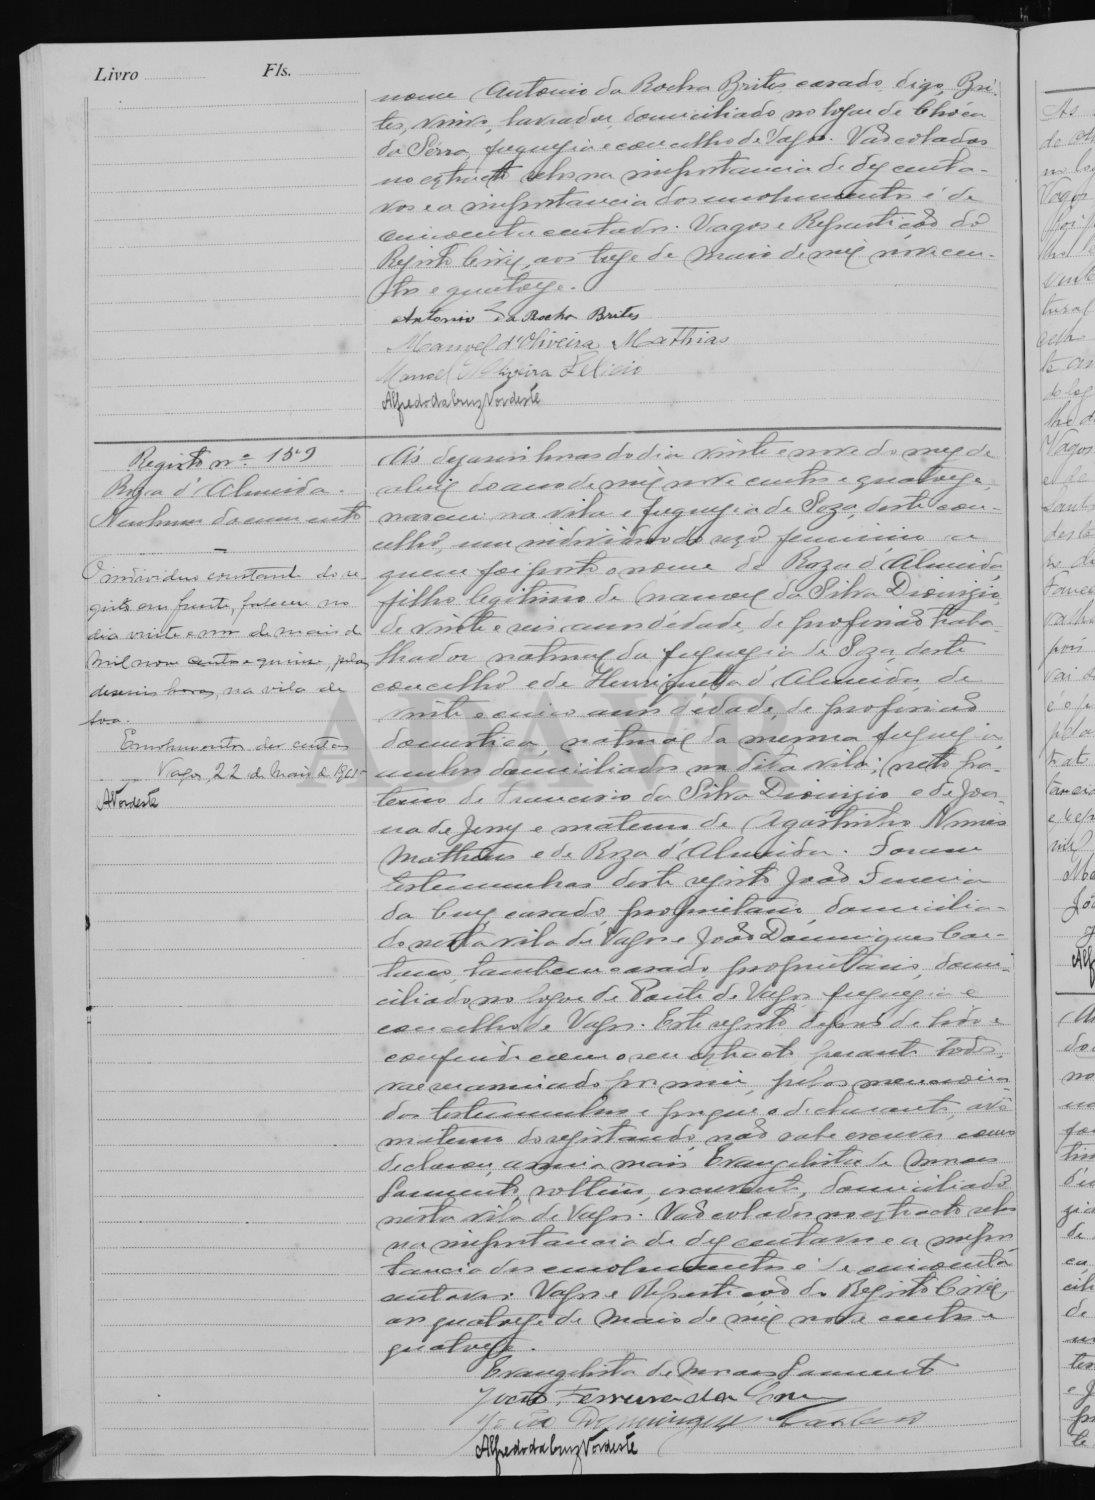 Livro Fls.
nome Antonio da Rocha Brites casado, digo, Bri-
tes, viuvo, lavrador, domiciliado no logar de Chóca
da Serra, freguezia e concelho de Vagos. Vão colados
no extracto selos na importancia de dez centa-
vos e a importancia dos emolumentos é de
cincoenta centavos. Vagos e Repartição do
Registo Civil, aos treze de Maio de mil novecen-
tos e quatorze.
Antonio da Rocha Brites
Manoel d'Oliveira Mathias
Manoel Felicio
Alfredo da Cruz Nordeste
Registo nº 159
Roza d'Almeida.
Nenhum documento
O individuo constante do re
gisto em frente, faleceu no
dia vinte e um de maio de
mil nove centos e quinze, pelas
dezeseis horas, na vila de
Soza.
Emolumentos dez centavos
Vagos, 22 de Maio de 1915
ANordeste
Ás dezaseis horas do dia vinte e nove do mez de
abril do ano de mil nove centos e quatorze,
nasceu na vila e freguezia de Soza, deste con-
celho, um individuo do sexo feminino a
quem foi posto o nome de Roza d'Almeida,
filho legitimo de Manoel da Silva Dionizio,
de vinte e seis anos d'edade, de profissão traba-
lhador natural da freguezia de Soza, deste
concelho e de Henriqueta d'Almeida, de
vinte e cinco anos d'edade, de profissão
domestica, natural da mesma freguezia,
ambos domiciliados na dita vila; neto pa-
terno de Francisco da Silva Dionizio e de Joa-
na de Jesus e materno de Agostinho Nunes
Matheus e de Roza d'Almeida. Foram
testemunhas deste registo João Ferreira
da Cruz, casado, proprietario, domicilia-
do nesta vila de Vagos e João Domingues Cae-
tano, tambem casado, proprietario, domi-
ciliado no logar de Ponte de Vagos, freguezia e
concelho de Vagos. Este registo depois de lido e
conferido com o seu extracto perante todos,
vae assinado por mim, pelas menciona-
das testemunhas e porque o declarante, avô
materno do registando, não sabe escrever como
declarou, assina mais Evangelista de Moraes
Sarmento, solteiro, escrevente, domiciliado
nesta vila de Vagos. Vão colados no extracto selos
na importancia de dez centavos e a impor-
tancia dos emolumentos é de cincoenta
centavos. Vagos e Repartição do Registo Civil,
aos quatorze de Maio de mil nove centos e
quatorze.
Evangelista de Moraes Sarmento
João Ferreira da Cruz
João Domingues Caetano
Alfredo da Cruz Nordeste